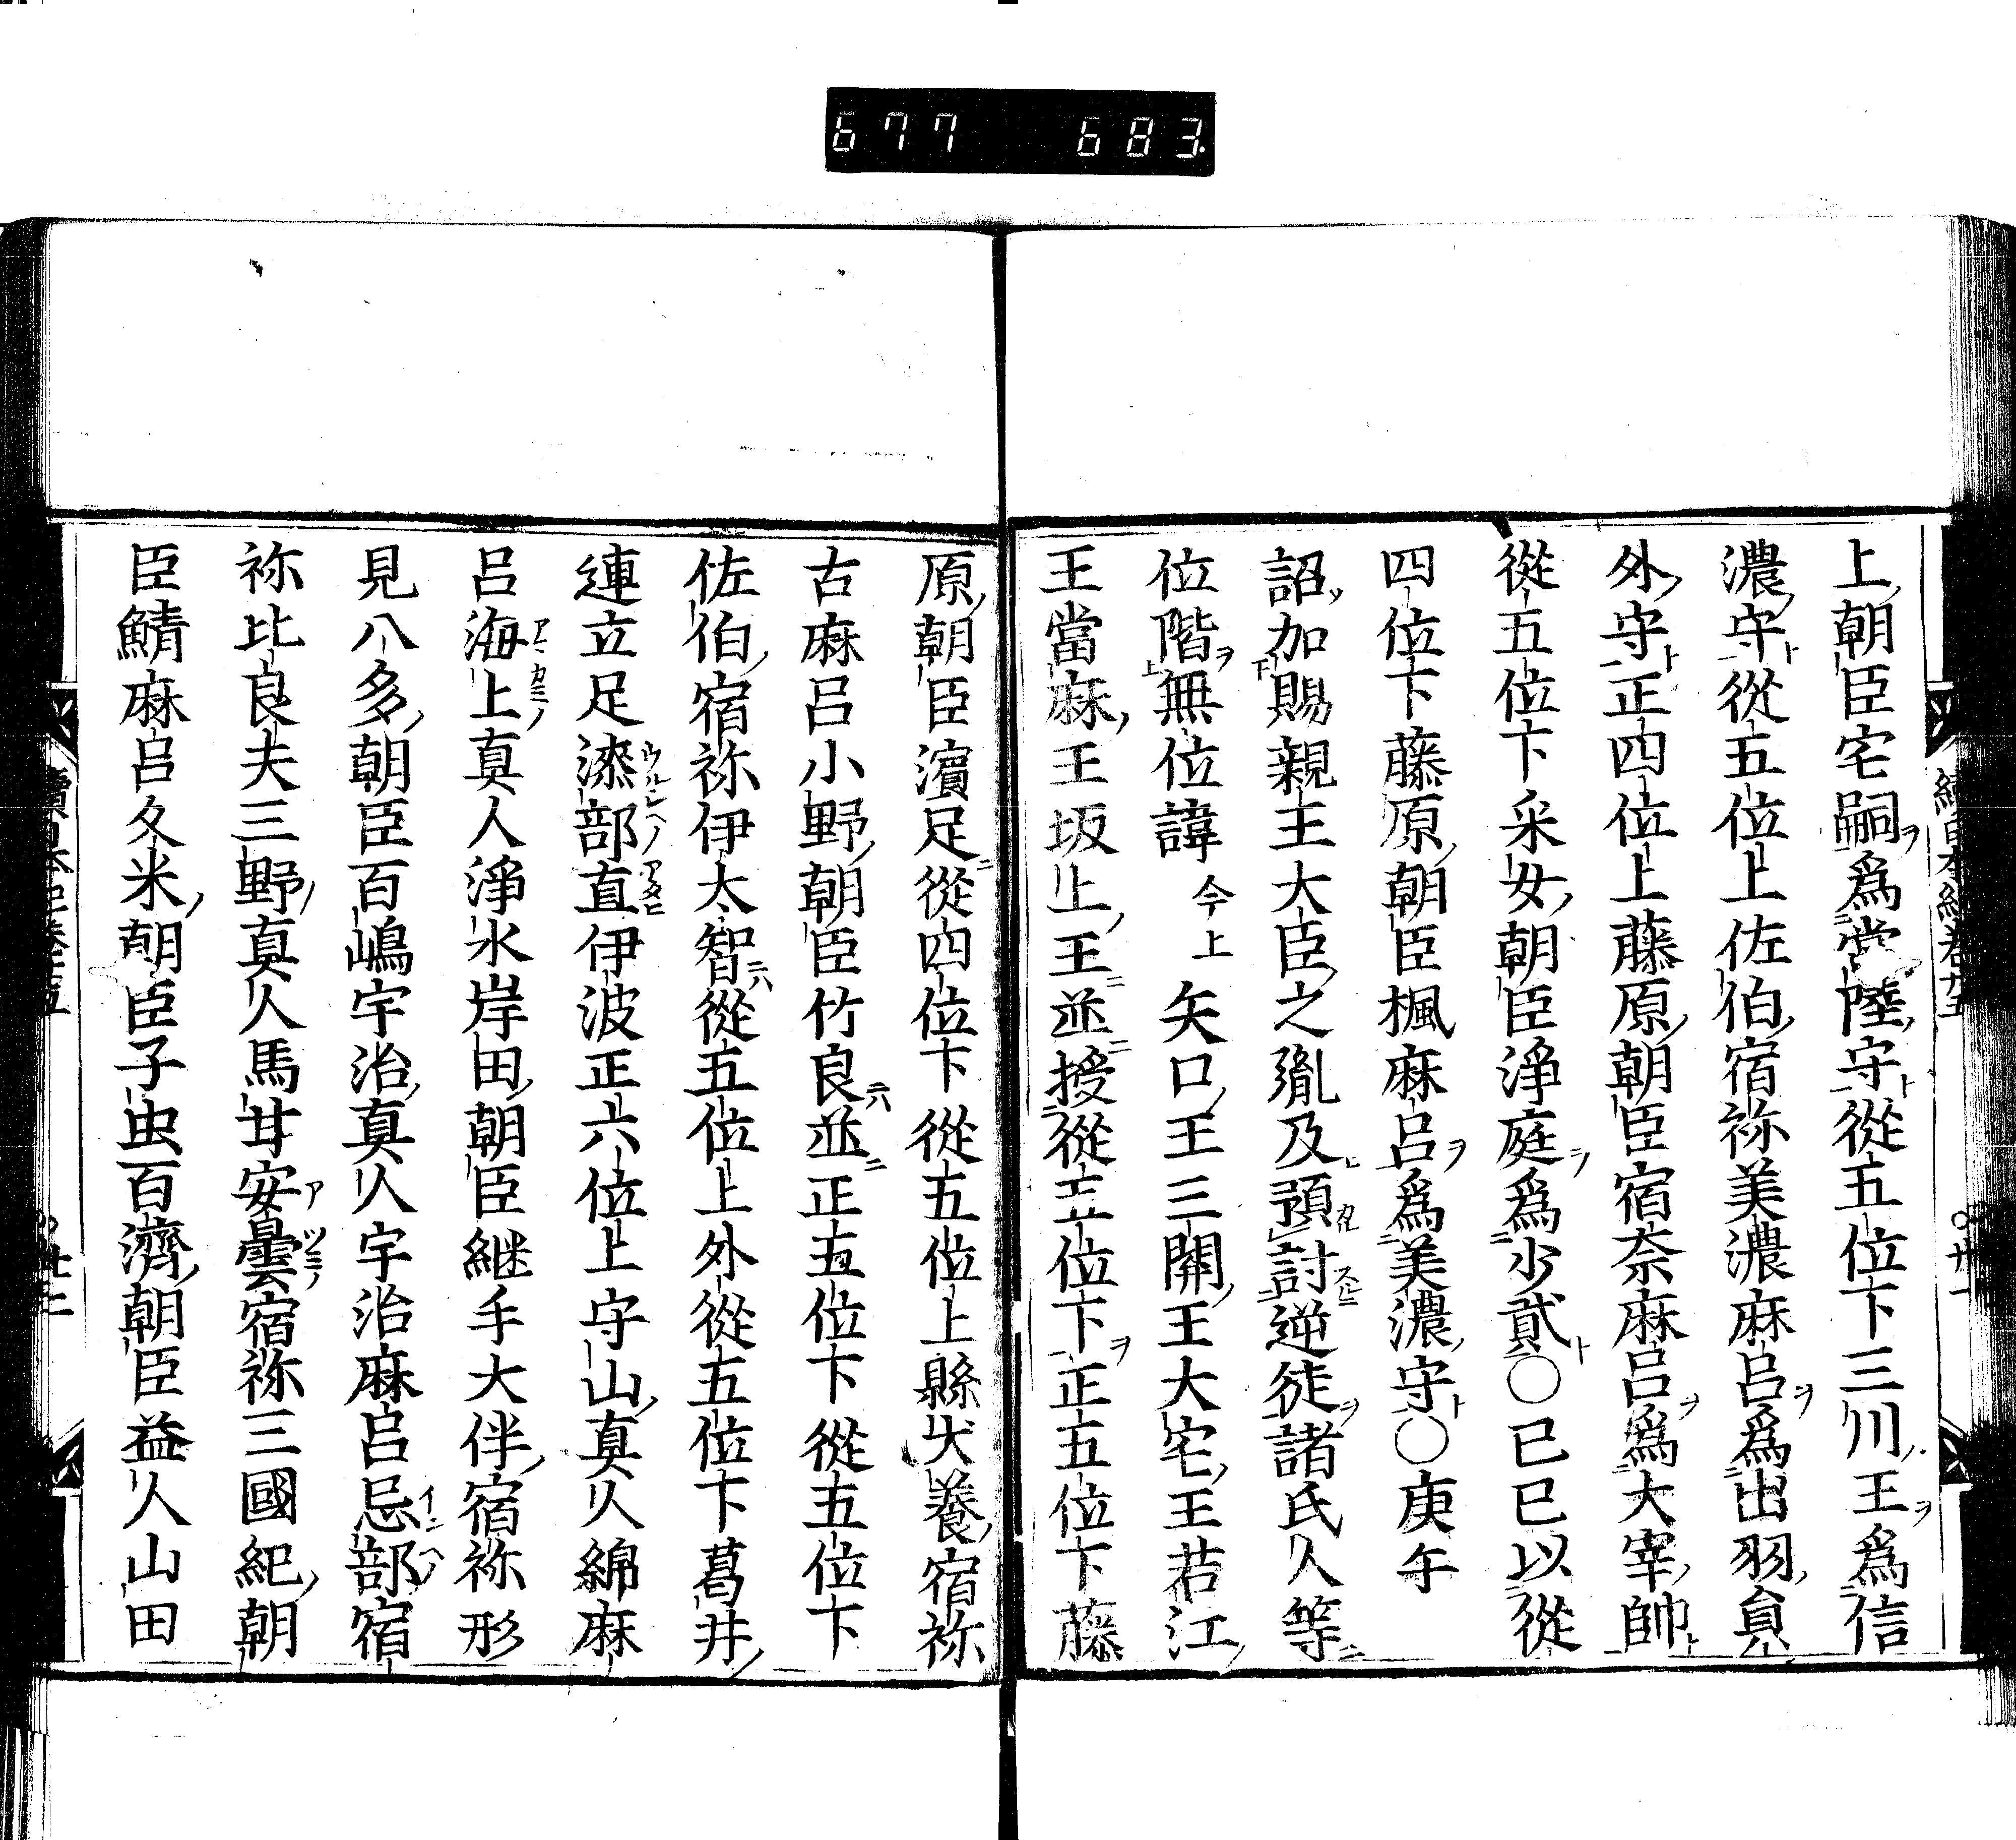 677 683
上朝臣宅嗣爲常陸守從五位下三川王爲信
濃守從五位上佐伯宿祢美濃麻呂爲出羽員
外守正四位上藤原朝臣宿奈麻呂爲大宰帥
從五位下采女朝臣淨庭爲少貳○己巳以從
四位下藤原朝臣楓麻呂爲美濃守○庚午
詔加賜親王大臣之胤及預討逆徒諸氏人等
位階無位諱今上矢口王三關王大宅王若江
王當麻王坂上王並授從五位下正五位下藤
原朝臣濵足從四位下從五位上縣犬養宿祢
古麻呂小野朝臣竹良並正五位下從五位下
佐伯宿祢伊太智從五位上外從五位下葛井
連立足漆部直伊波正六位上守山真人綿麻
呂海上真人淨水岸田朝臣継手大伴宿祢形
見八多朝臣百嶋宇治真人宇治麻呂忌部宿
祢比良夫三野真人馬甘安曇宿祢三國紀朝
臣鯖麻呂久米朝臣子虫百濟朝臣益人山田